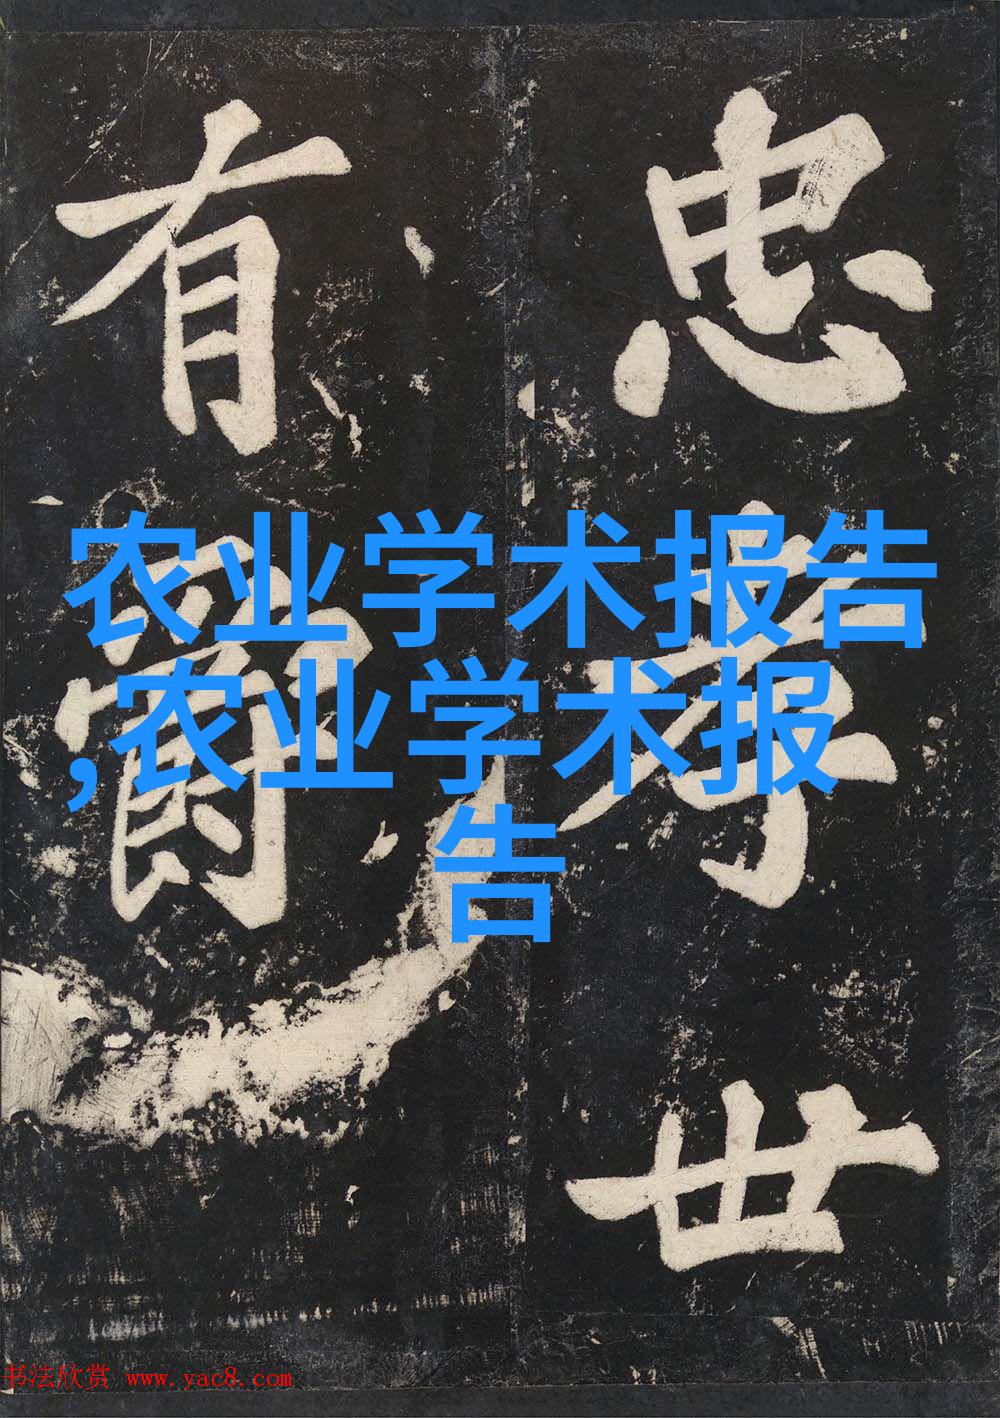 忠孝世
有爵
农业学术报告
,农业学术报
告
书法欣赏 www.yac8.com